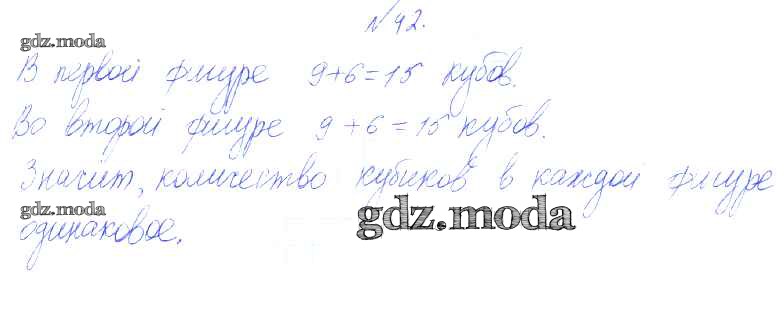 № 42.
gdz.moda
В первой фигуре 9+6=15 кубов.
Во второй фигуре 9+6=15 кубов.
Значит, количество кубиков в каждой фигуре
gdz.moda
gdz.moda
одинаковое.